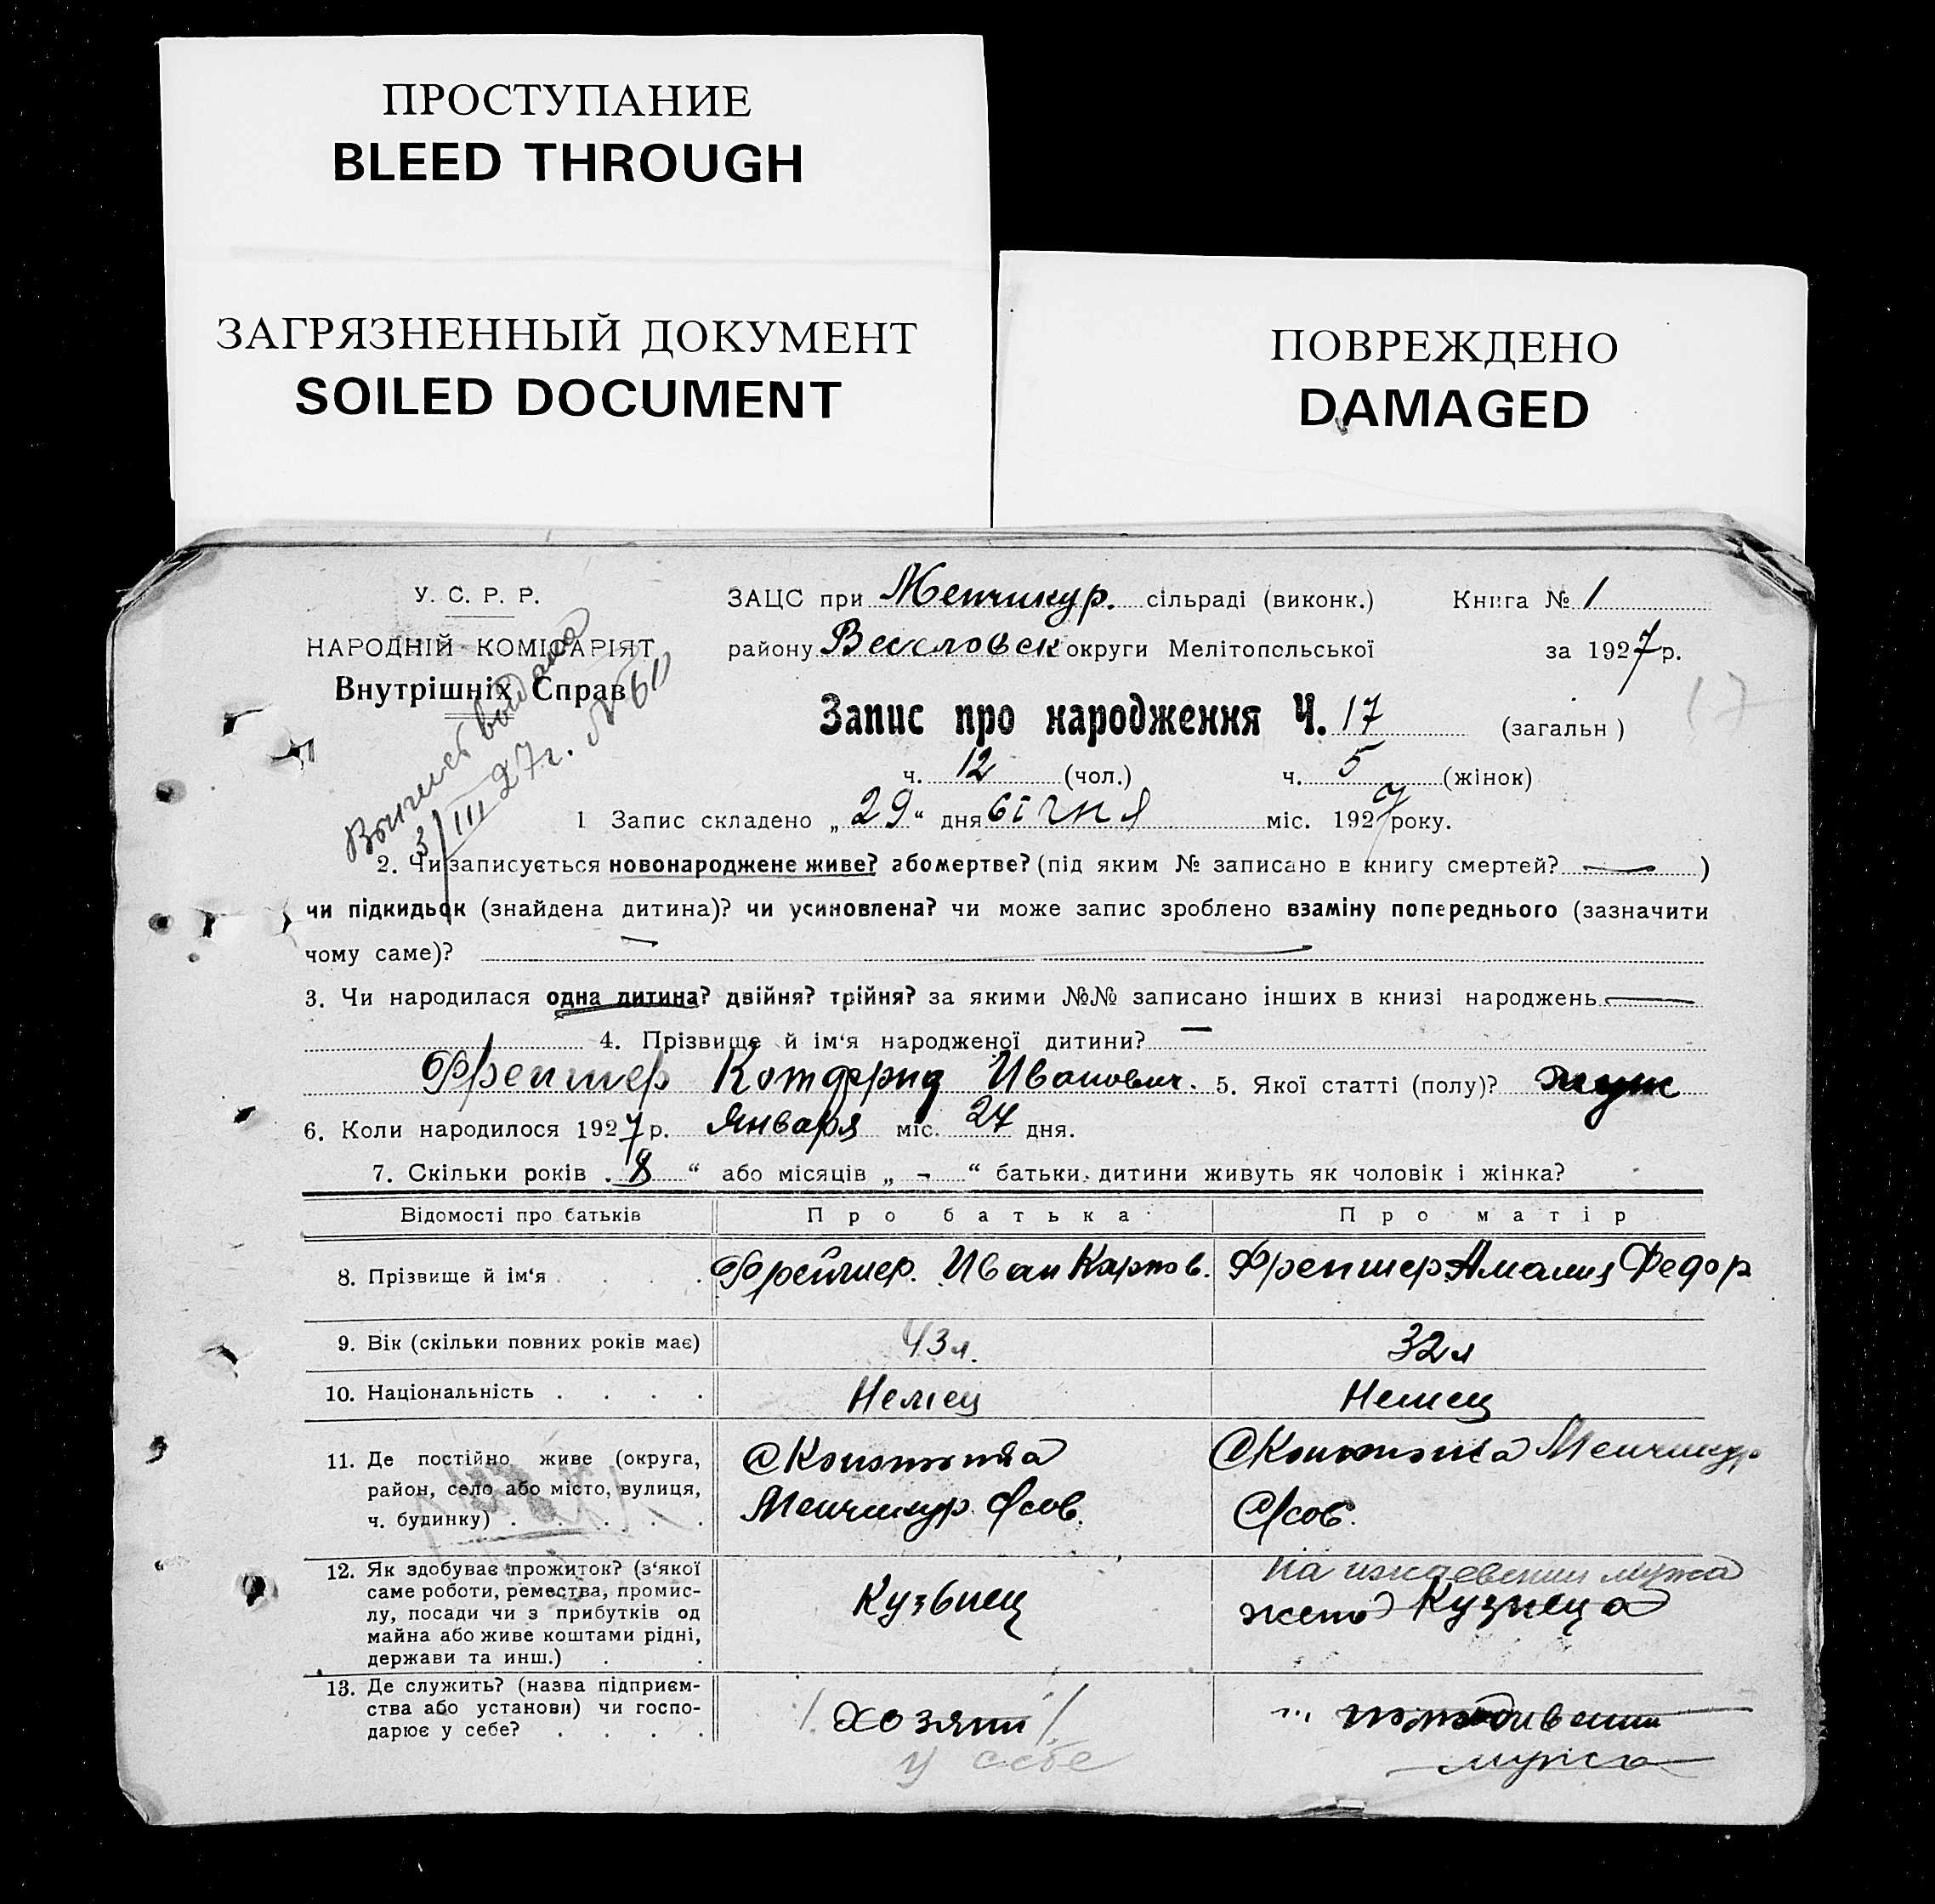 ПРОСТУПАНИЕ
BLEED THROUGH
ЗАГРЯЗНЕННЫЙ ДОКУМЕНТ
SOILED DOCUMENT
ПОВРЕЖДЕНО
DAMAGED
У. С. Р. Р.
НАРОДНІЙ КОМІСАРІЯТ
Внутрішніх Справ
3/III 27г. №
ЗАЦС при Менчикур. сільраді (виконк.) Книга № 1
району Веселовск округи Мелітопольської за 1927 р.
Запис про народження Ч. 17 (загальн)
17
ч. 12 (чол.) ч. 5 (жінок)
1 Запис складено „29“ дня січня міс. 1927 року.
2. Чи записується новонароджене живе? або мертве? (під яким № записано в книгу смертей? — )
чи підкидьок (знайдена дитина)? чи усиновлена? чи може запис зроблено взаміну попереднього (зазначити
чому саме)?
3. Чи народилася одна дитина? двійня? трійня? за якими №№ записано інших в книзі народжень —
4. Прізвище й ім‘я народженої дитини? —
Фрейшер Иванович. 5. Якої статті (полу)? муж
6. Коли народилося 1927 р. Января міс. 27 дня.
7. Скільки років „8“ або місяців „ - “ батьки дитини живуть як чоловік і жінка?
Відомості про батьків Про батька Про матір
8. Прізвище й ім‘я . . . . Фрейшер. Иван Карлов. Фрейшер Амалия Федор
9. Вік (скільки повних років має) 43 л. 32 л
10. Національність . . . . Немец Немец
11. Де постійно живе (округа,
район, село або місто, вулиця,
ч. будинку) . . . . .
Менчикур
Менчикур
12. Як здобуває прожиток? (з‘якої
саме роботи, ремества, промис-
лу, посади чи з прибутків од
майна або живе коштами рідні,
держави та инш.) . .
Кузьнец
На иждевении мужа
жена Кузнеца
13. Де служить? (назва підприєм-
ства або установи) чи госпо-
дарює у себе? . . . .
хозяин
у себе
мужа